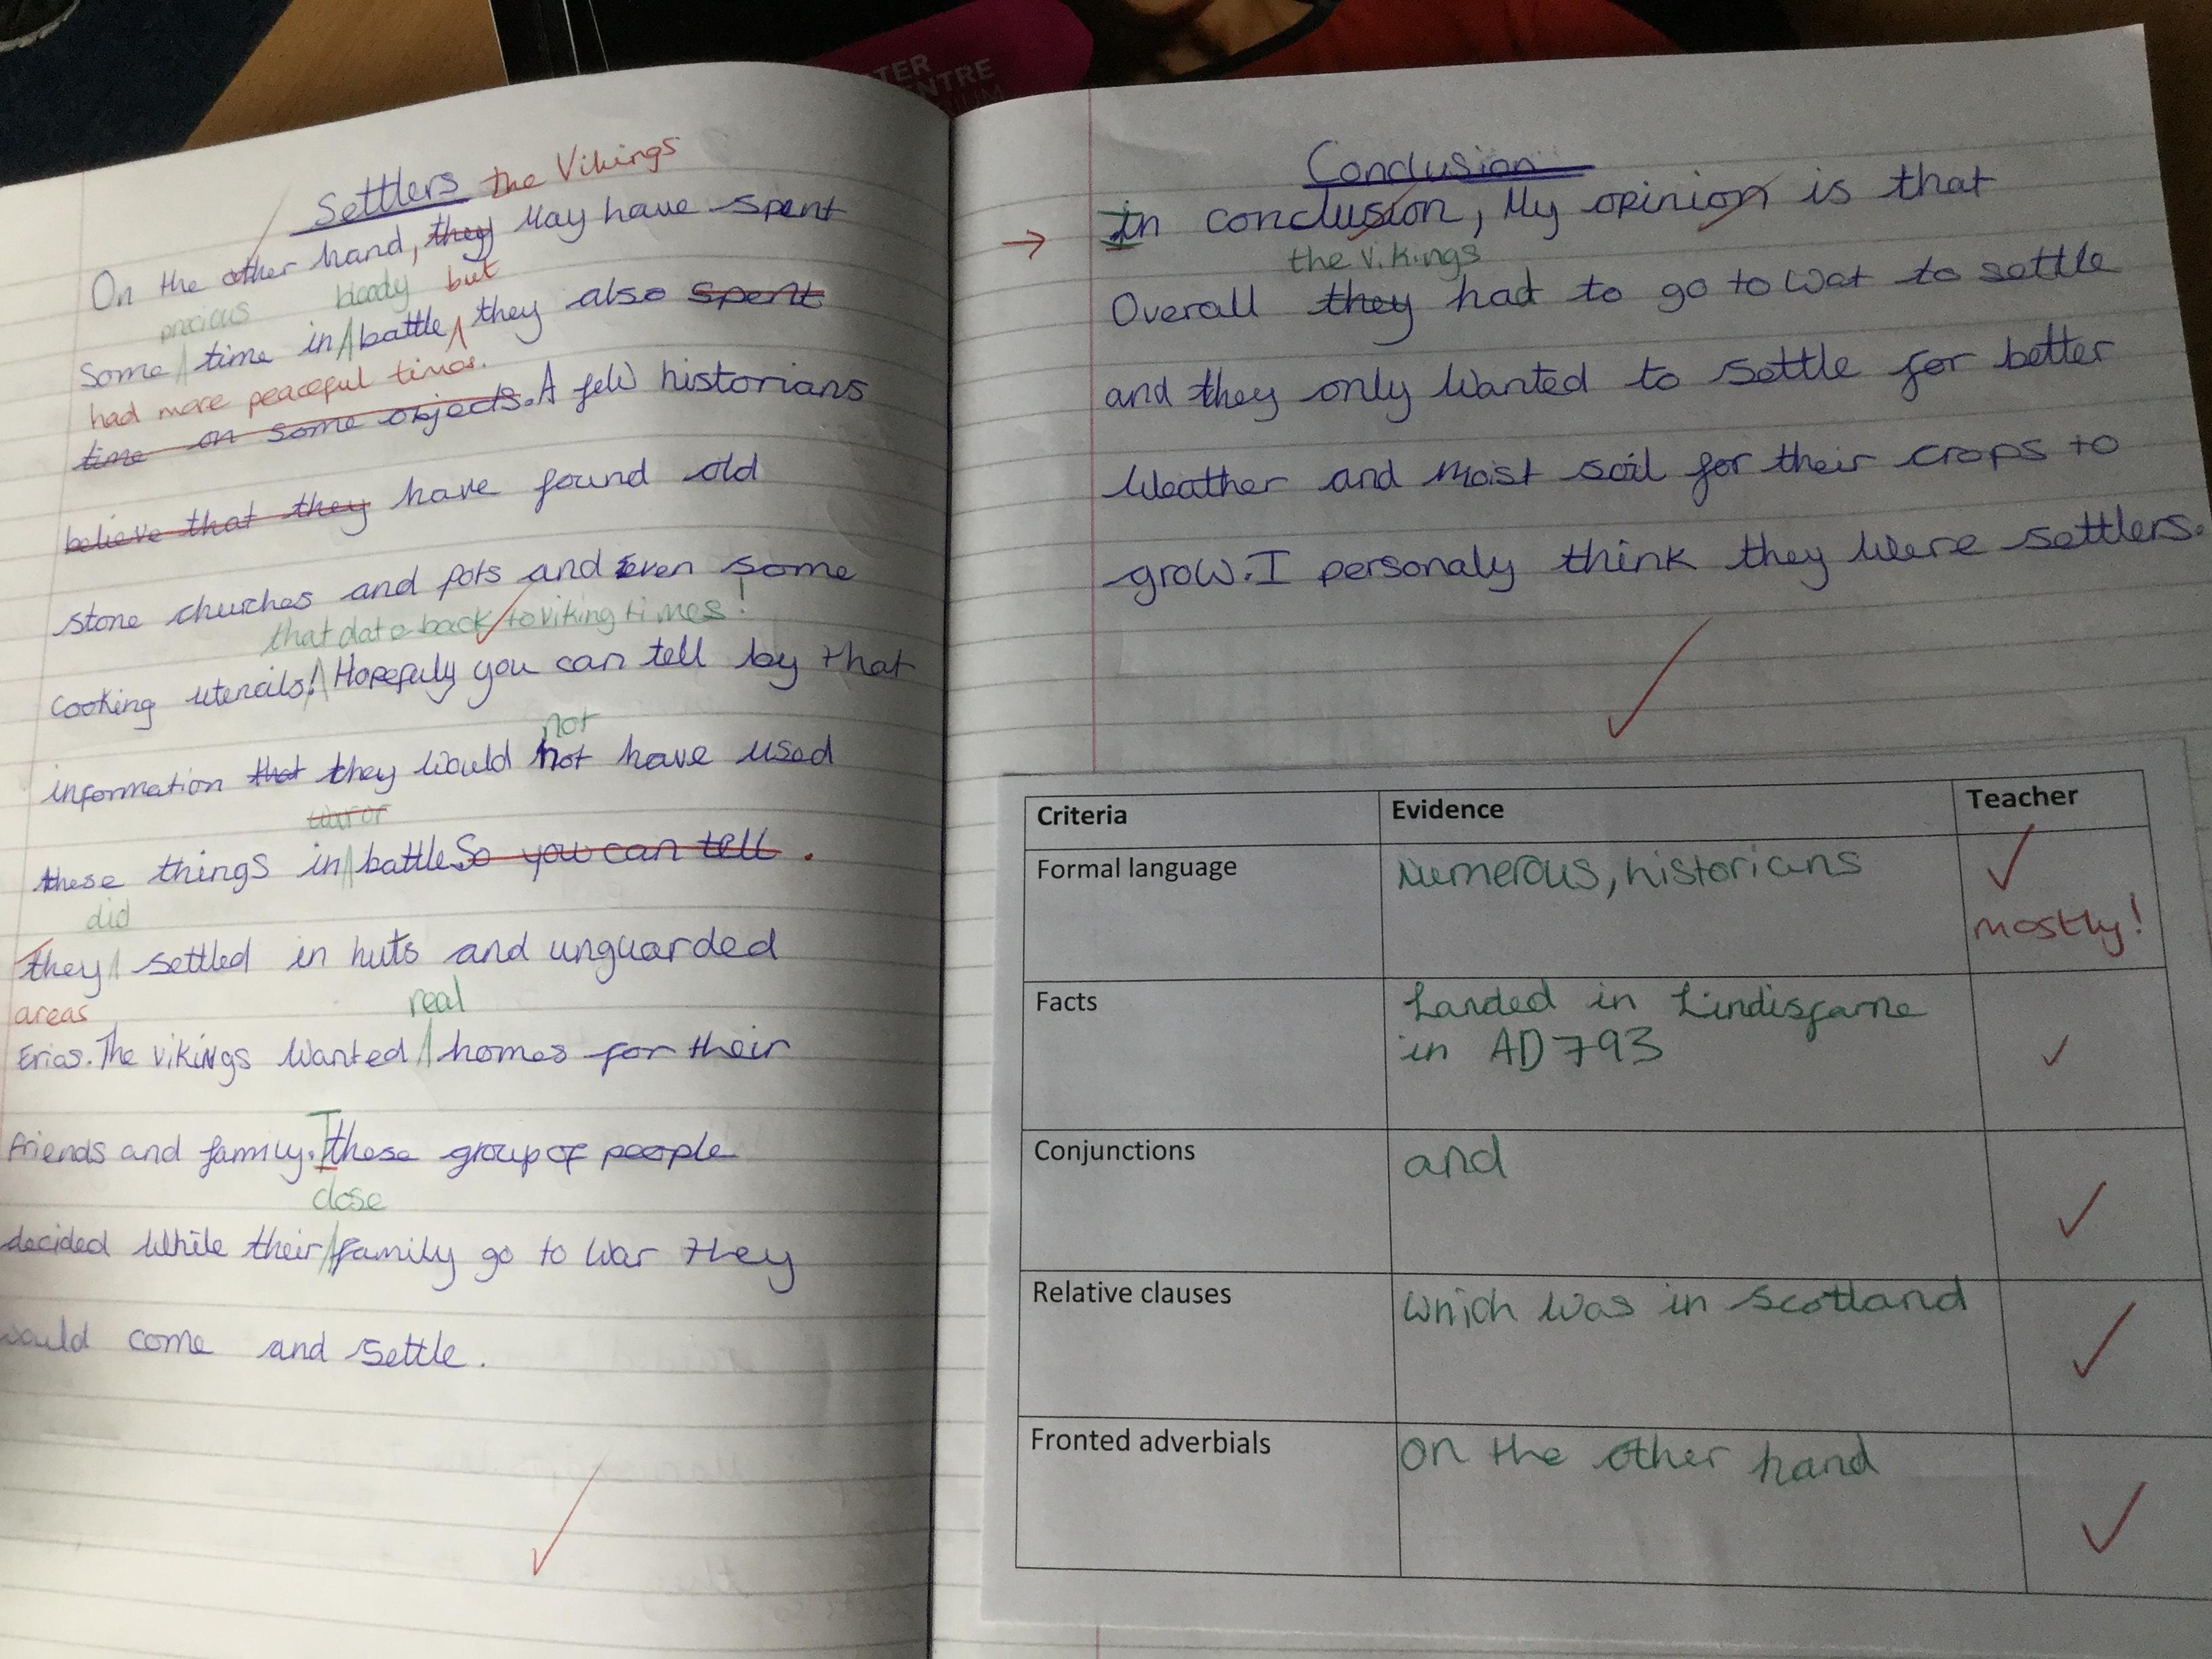 TER
ENTRE
Settlers the Vikings
On the other hand, they may have spent
precious bloody but
Some time in battle, they also spent
had more peaceful times.
time on some objects. A few historians
believe that they have found old
stone churches and pots and even some
that date back to viking times!
cooking utencils! Hopefuly you can tell by that
not
information that they would not have used
these things in battle So you can tell .
did
They settled in huts and unguarded
areas real
Erias. The vikings wanted homes for their
friends and family. These group of people
close
decided while their family go to war they
would come and settle.
Conclusion
→ In conclusion, My opinion is that
the vikings
Overall they had to go to war to settle
and they only wanted to settle for better
weather and moist soil for their crops to
grow. I personaly think they were settlers.
Criteria Evidence Teacher
Formal language Numerous, historians ✓
mostly!
Facts Landed in Lindisfarne ✓
in AD 793
Conjunctions and ✓
Relative clauses which was in Scotland ✓
Fronted adverbials on the other hand ✓